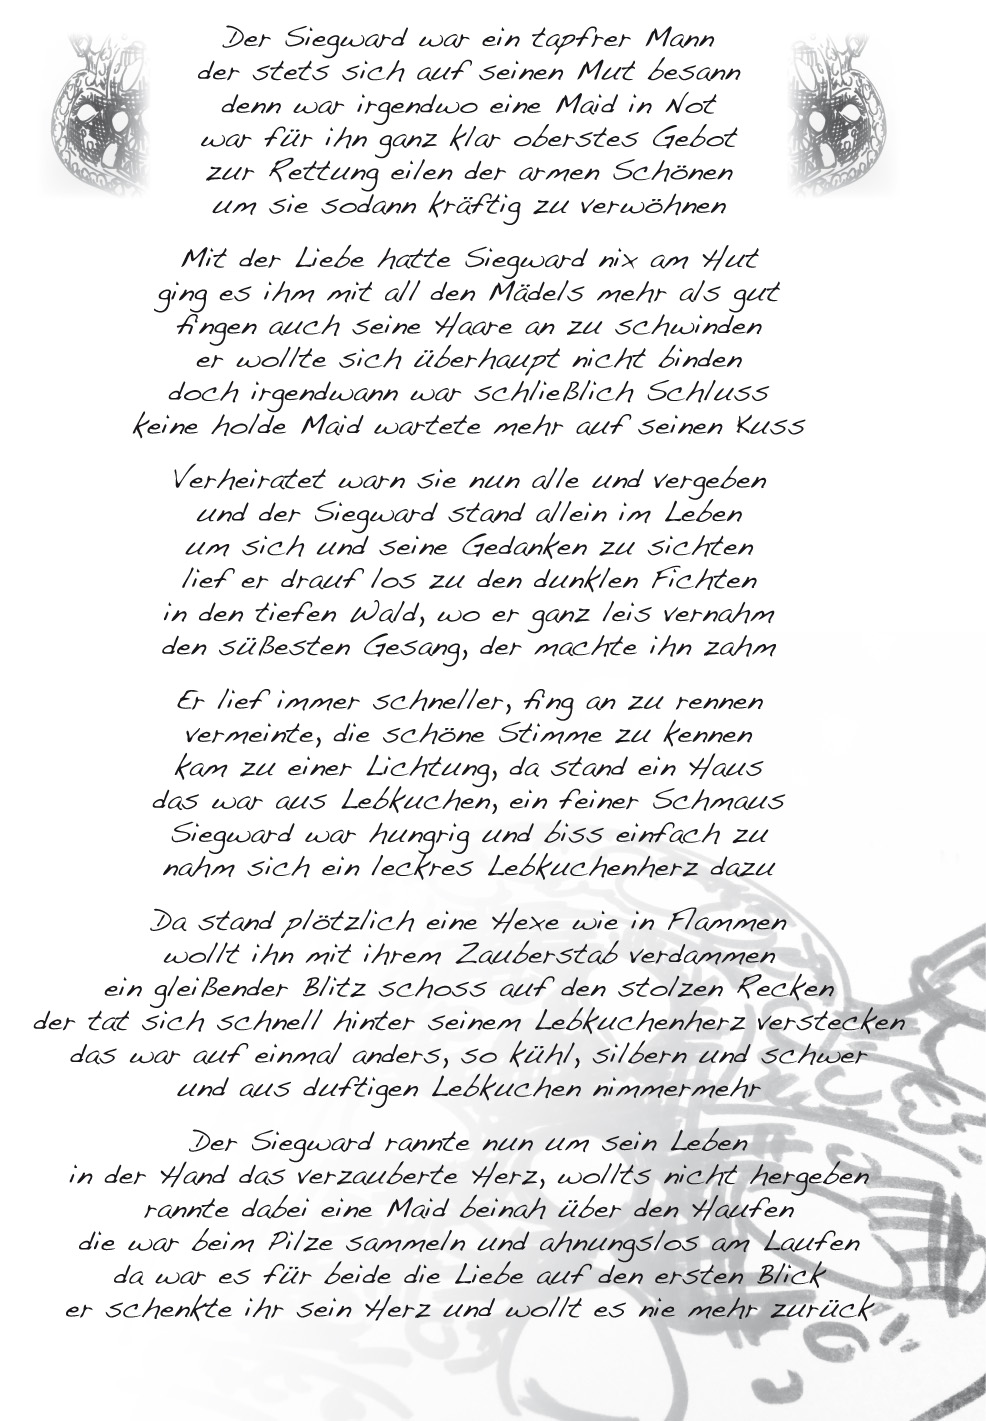 Der Siegward war ein tapfrer Mann
der stets sich auf seinen Mut besann
denn war irgendwo eine Maid in Not
war für ihn ganz klar oberstes Gebot
zur Rettung eilen der armen Schönen
um sie sodann kräftig zu verwöhnen
Mit der Liebe hatte Siegward nix am Hut
ging es ihm mit all den Mädels mehr als gut
fingen auch seine Haare an zu schwinden
er wollte sich überhaupt nicht binden
doch irgendwann war schließlich Schluss
keine holde Maid wartete mehr auf seinen Kuss
Verheiratet warn sie nun alle und vergeben
und der Siegward stand allein im Leben
um sich und seine Gedanken zu sichten
lief er drauf los zu den dunklen Fichten
in den tiefen Wald, wo er ganz leis vernahm
den süßesten Gesang, der machte ihn zahm
Er lief immer schneller, fing an zu rennen
vermeinte, die schöne Stimme zu kennen
kam zu einer Lichtung, da stand ein Haus
das war aus Lebkuchen, ein feiner Schmaus
Siegward war hungrig und biss einfach zu
nahm sich ein leckres Lebkuchenherz dazu
Da stand plötzlich eine Hexe wie in Flammen
wollt ihn mit ihrem Zauberstab verdammen
ein gleißender Blitz schoss auf den stolzen Recken
der tat sich schnell hinter seinem Lebkuchenherz verstecken
das war auf einmal anders, so kühl, silbern und schwer
und aus duftigen Lebkuchen nimmermehr
Der Siegward rannte nun um sein Leben
in der Hand das verzauberte Herz, wollts nicht hergeben
rannte dabei eine Maid beinah über den Haufen
die war beim Pilze sammeln und ahnungslos am Laufen
da war es für beide die Liebe auf den ersten Blick
er schenkte ihr sein Herz und wollt es nie mehr zurück